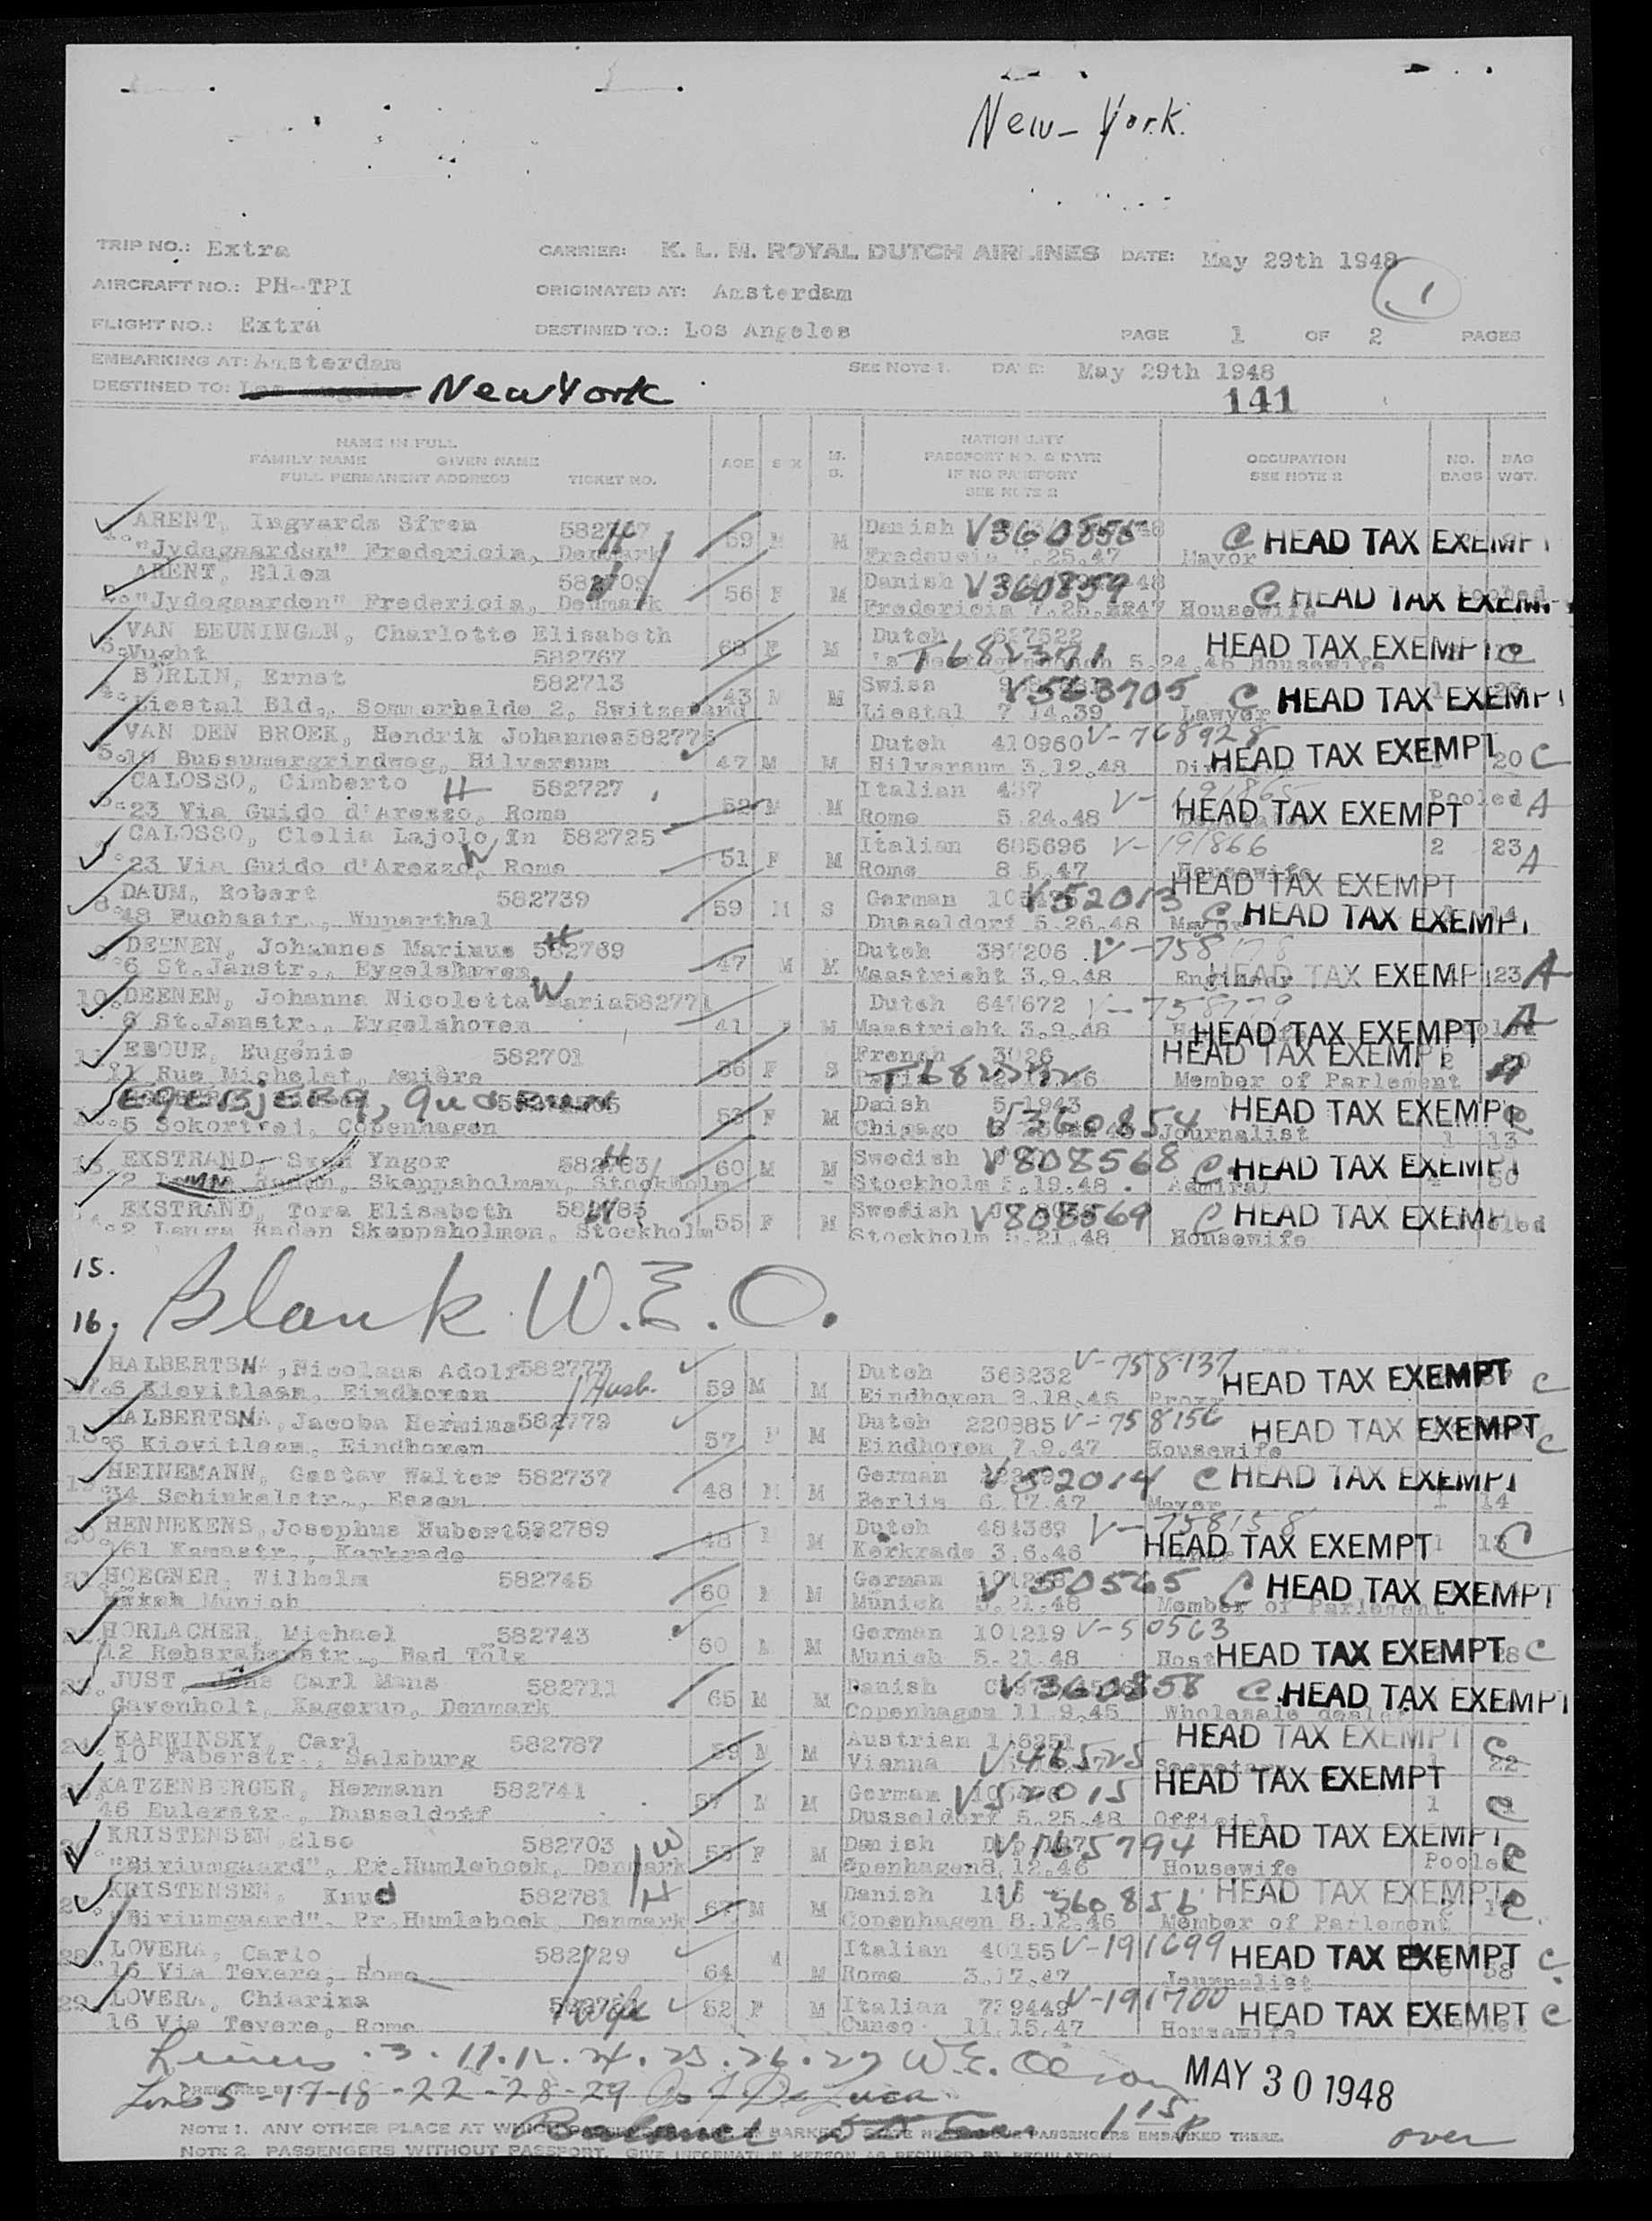 New-York.
TRIP NO.: Extra CARRIER: K. L. M. ROYAL DUTCH AIRLINES DATE: May 29th 1948
AIRCRAFT NO.: PH-TPI ORIGINATED AT: Amsterdam 1
FLIGHT NO.: Extra DESTINED TO.: Los Angeles PAGE 1 OF 2 PAGES
EMBARKING AT: Amsterdam SEE NOTE 1. DATE: May 29th 1948
DESTINED TO: New York 141
NAME IN FULL
FAMILY NAME GIVEN NAME
FULL PERMANENT ADDRESS TICKET NO. AGE SEX M. S. NATIONALITY PASSPORT NO. & DATE IF NO PASSPORT SEE NOTE 2 OCCUPATION SEE NOTE 2 NO. BAGS BAG WGT.
ARENT, Ingvards 59 M M Danish V360855 C HEAD TAX EXEMPT
"Jydagaarden" Fredericia, Denmark 25.47 Mayor
ARENT, Ellen 56 F M Danish V360859 C HEAD TAX EXEMPT
"Jydagaarden" Fredericia, Denmark Fredericia 7.25. 47 Housewife
VAN BEUNINGEN, Charlotte Elisabeth F M Dutch 627522 HEAD TAX EXEMPT C
3. Vught 582767 T682371 5.24.46 Housewife
BÖRLIN, Ernst 582713 43 M M Swiss V563705 C HEAD TAX EXEMPT
4. Liestal Bld., Sommerhalde 2, Switzerland Liestal 7.14.39 Lawyer
VAN DEN BROEK, Hendrik Johannes 582775 47 M M Dutch 410960 V-768928 HEAD TAX EXEMPT
5. 19 Bussumergrindweg, Hilversum Hilversum 3.12.48 20 C
CALOSSO, Cimberto H 582727 52 M M Italian 437 Pooled A
23 Via Guido d'Arezzo, Rome Rome 5.24.48 HEAD TAX EXEMPT
CALOSSO, Clelia Lajolo In 582725 51 F M Italian 685696 V-191866 2 23 A
W 23 Via Guido d'Arezzo, Rome Rome 8.5.47 Housewife HEAD TAX EXEMPT
DAUM, Robert 582739 59 M S German V52013 C HEAD TAX EXEMPT
8. 48 Fuchsstr., Wuperthal Dusseldorf 5.26.48
DEENEN, Johannes Marinus H 582769 47 M M Dutch 387206 V-758178 HEAD TAX EXEMPT
6 St.Janstr., Eygelshoven Maastricht 3.9.48 Engineer 23 A
10. DEENEN, Johanna Nicoletta Maria 582771 W 41 M Dutch 647672 V-758179
6 St.Janstr., Eygelshoven Maastricht 3.9.48 HEAD TAX EXEMPT A
EBOUE, Eugénie 582701 56 F S French 3026 HEAD TAX EXEMPT
11 Rue Michelet, Member of Parlement A
EGEBJERG, Gudrun F M Danish HEAD TAX EXEMPT C
5 Sokortvej, Copenhagen Chicago V360854 Journalist 1 13
EKSTRAND, Yngor H 60 M M Swedish V808568 C HEAD TAX EXEMPT
2 Raden, Skeppsholmen, Stockholm Stockholm 5.19.48 Admiral
EKSTRAND, Tora Elisabeth W 55 F M Swedish V808569 C HEAD TAX EXEMPT
2 Langa Raden Skeppsholmen, Stockholm Stockholm 5.21.48 Housewife
15.
16. Blank W.E.O.
HALBERTSMA, Nicolaas Adolf 582777 59 M M Dutch 363232 V-758137 HEAD TAX EXEMPT
17. 6 Kievitlaan, Eindhoven Husb. Eindhoven 3.18.46 Proxy C
HALBERTSMA, Jacoba Hermina 582779 57 F M Dutch 220885 V-758156 HEAD TAX EXEMPT
18. 6 Kievitlaan, Eindhoven Eindhoven 7.9.47 Housewife C
HEINEMANN, Gustav Walter 582737 48 M M German V52014 C HEAD TAX EXEMPT
34 Schinkelstr., Essen Berlin 6.17.47 Mayor 1 14
HENNEKENS, Josephus Hubertus 582789 48 M Dutch 484369 V-758158
20. 161 Kamastr., Kerkrade Kerkrade 3.6.46 HEAD TAX EXEMPT C
HOEGNER, Wilhelm 582745 60 M M German V50565 C HEAD TAX EXEMPT
Munich Munich 5.21.48 Member of Parlement
HORLACHER, Michael 582743 60 M M German 101219 V-50563
12 Bad Tölz Munich 5.21.48 HEAD TAX EXEMPT C
JUST Carl Mans 582711 65 M M Danish V360858 C HEAD TAX EXEMPT
Gavenholt, Kagerup, Denmark Copenhagen 11.9.45 Wholesale dealer
KARWINSKY, Carl 582787 59 M M Austrian HEAD TAX EXEMPT C
10 Faberstr., Salzburg Vienna V46525 Secretary 1 22
KATZENBERGER, Hermann 582741 57 M M German V52015 HEAD TAX EXEMPT
46 Eulerstr., Dusseldorf Dusseldorf 5.25.48 Official 1 C
KRISTENSEN, Else 582703 W F M Danish V165794 HEAD TAX EXEMPT
"Biriumgaard", Pr.Humlebaek, Denmark 8.12.46 Housewife Pooled C
KRISTENSEN, Knud 582781 H 67 M M Danish V360856 HEAD TAX EXEMPT
"Biriumgaard", Pr.Humlebaek, Denmark Copenhagen 8.12.46 Member of Parlement C
LOVERA, Carlo 582729 64 M M Italian 40155 V-191699 HEAD TAX EXEMPT C
16 Via Tevere, Rome Rome 3.17.47 Journalist
29. LOVERA, Chiarina Wife 52 F M Italian 729449 V-191700 HEAD TAX EXEMPT C
16 Via Tevere, Rome Cuneo 11.15.47 Housewife
3.11.12.24.25.26.27 W.E. MAY 30 1948
Lines 5-17-18-22-28-29 De Luca
NOTE 1. ANY OTHER PLACE AT WHICH PASSENGERS EMBARKED THERE.
Balance over
NOTE 2. PASSENGERS WITHOUT PASSPORT, GIVE INFORMATION HEREON AS REQUIRED BY REGULATION